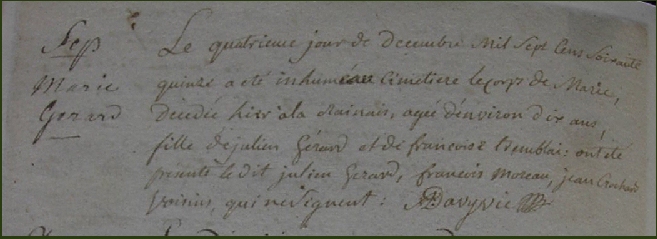 Sep
Marie
Gerard
Le quatrieme jour de decembre Mil Sept Cens Soixante
quinze a eté inhumé au Cimetiere le corps de Marie,
décédée hier à la agée d'environ dix ans,
fille de julien Gérard et de francoise tremblai : ont été
présents le dit julien Gérard, francois moreau, jean
voisins, qui ne signent : Davy vic